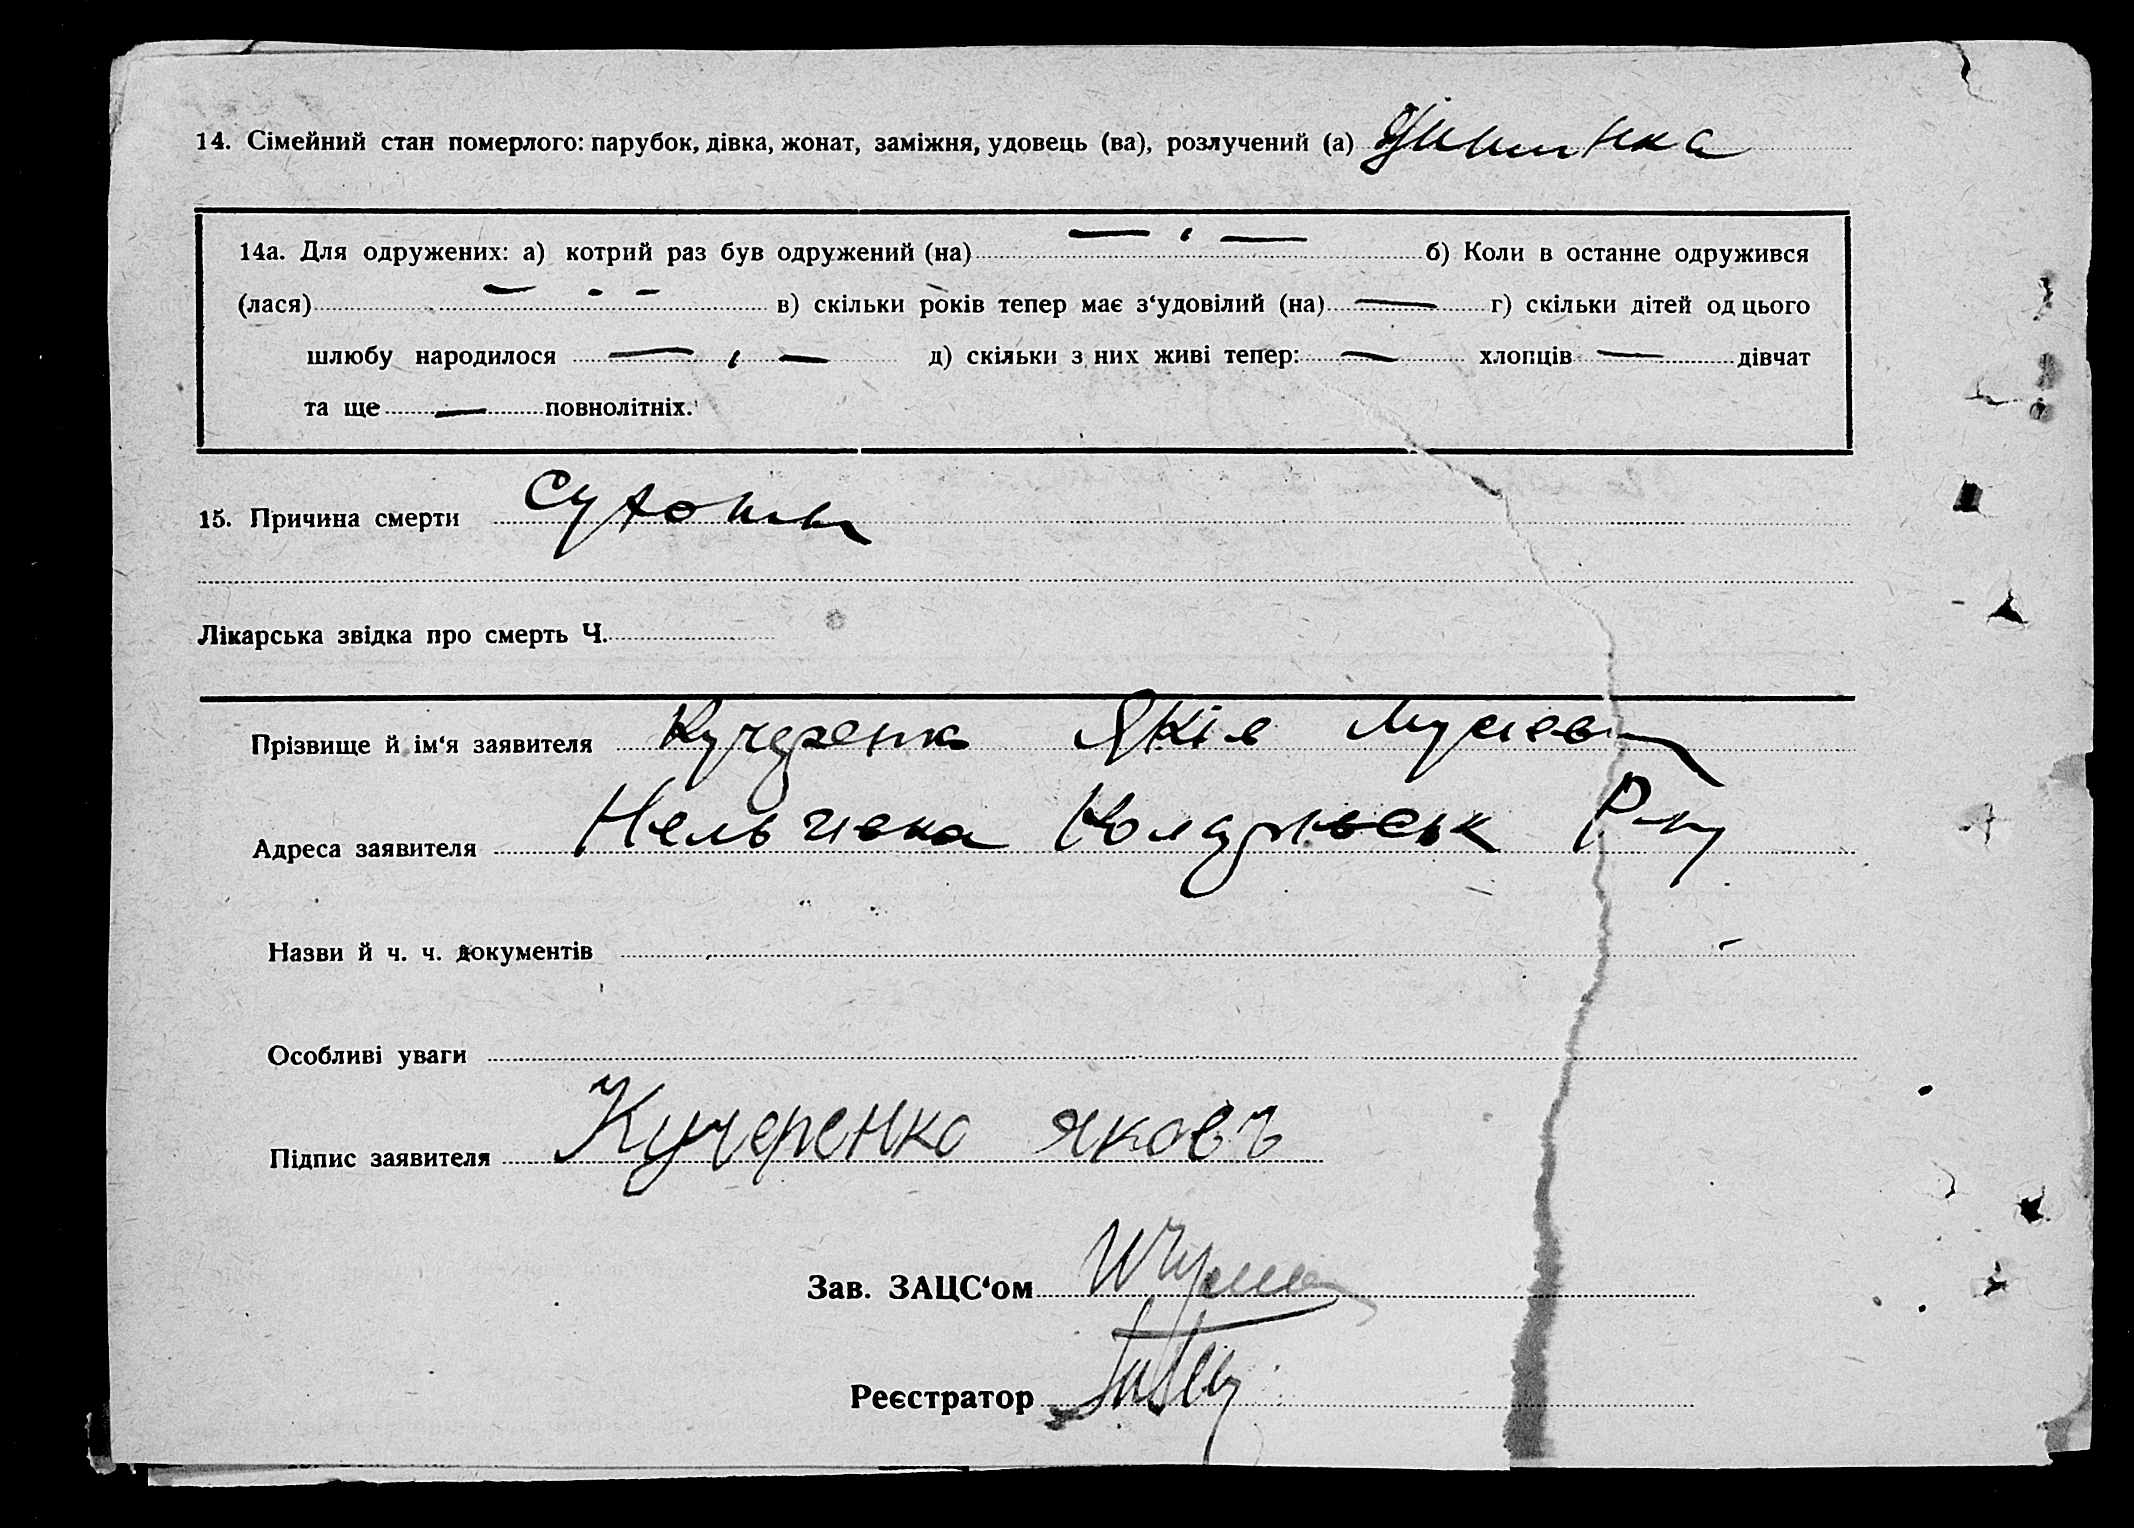 14. Сімейний стан померлого: парубок, дівка, жонат, заміжня, удовець (ва), розлучений (а)
14а. Для одружених: а) котрий раз був одружений (на) б) Коли в останне одружився
(лася) в) скільки років тепер має з‘удовілий (на) г) скільки дітей од цього
шлюбу народилося д) скільки з них живі тепер: хлопців дівчат
та ще повнолітніх.
15. Причина смерти Сухоти
Лікарська звідка про смерть Ч.
Прізвище й ім‘я заявителя Кучеренко Яків Мусієв
Адреса заявителя Рну
Назви й ч. ч. документів
Особливі уваги
Підпис заявителя Кучеренко Яковъ
Зав. ЗАЦС‘ом
Реєстратор